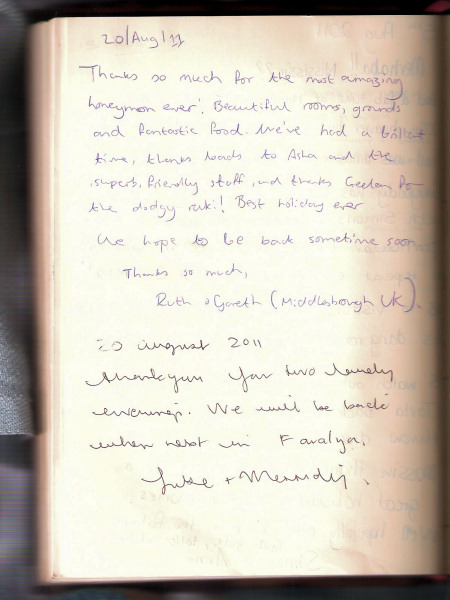 20/Aug/11
Thanks so much for the most amazing
honeymoon ever! Beautiful rooms, grounds
and fantastic food. We've had a brilliant
time, thanks loads to Asha and the
superb, friendly staff, and thanks for
the dodgy raki! Best holiday ever
We hope to be back sometime soon
Thanks so much,
Ruth & Gareth (Middlesbrough UK).
20 August 2011
Thankyou for two lovely
evenings. We will be back
when next in Faralya.
Luke +